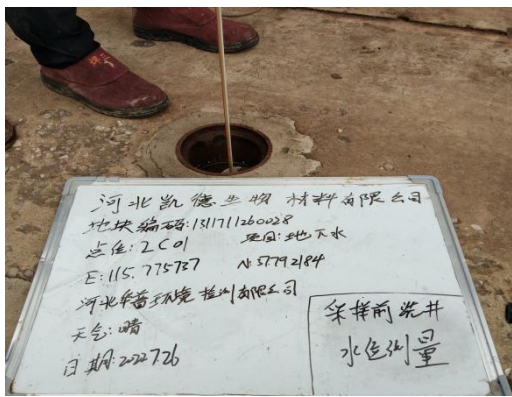 河北凯德生物材料有限公司
地块编码:1311711260028
点位:2C01 项目:地下水
E:115.775737 N:37.792184
河北华普环境检测有限公司
天气:晴
日期:2022.7.26
采样前洗井
水位测量